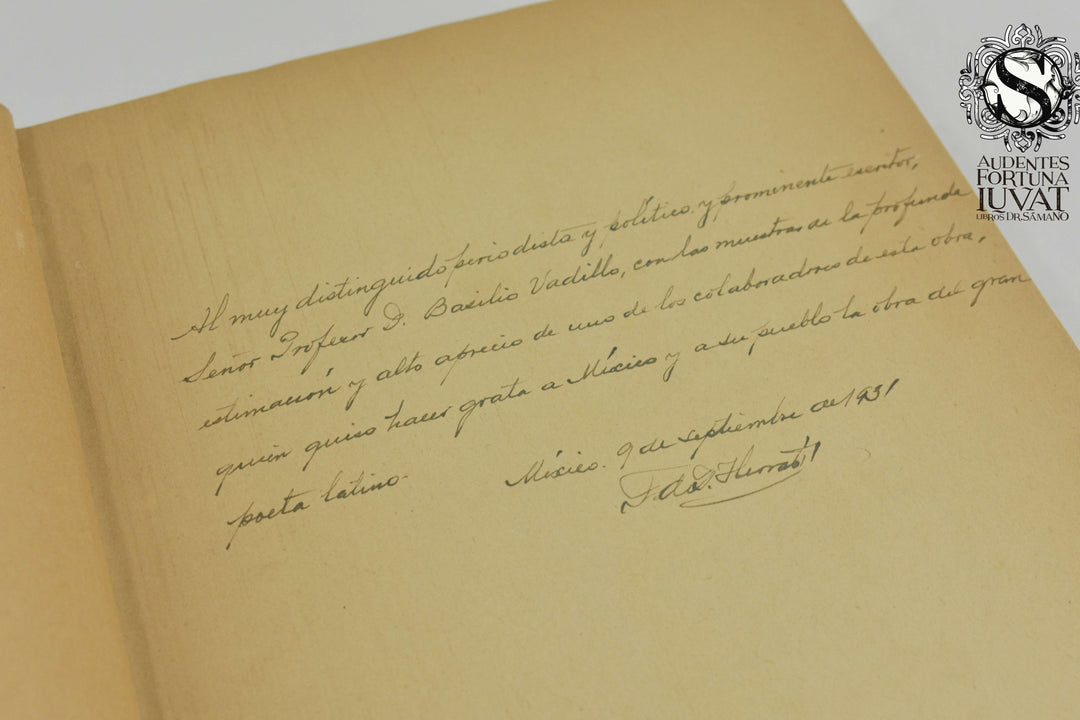 Al muy distinguido periodista y político y prominente escritor,
Señor Profesor D. Basilio Vadillo, con las muestras de la profunda
estimación y alto aprecio de uno de los colaboradores de esta obra,
quien quiso hacer grata a México y a su pueblo la obra del gran
poeta latino.
México. 9 de septiembre de 1931
S
AUDENTES
FORTUNA
IUVAT
LIBROS DR. SÁMANO